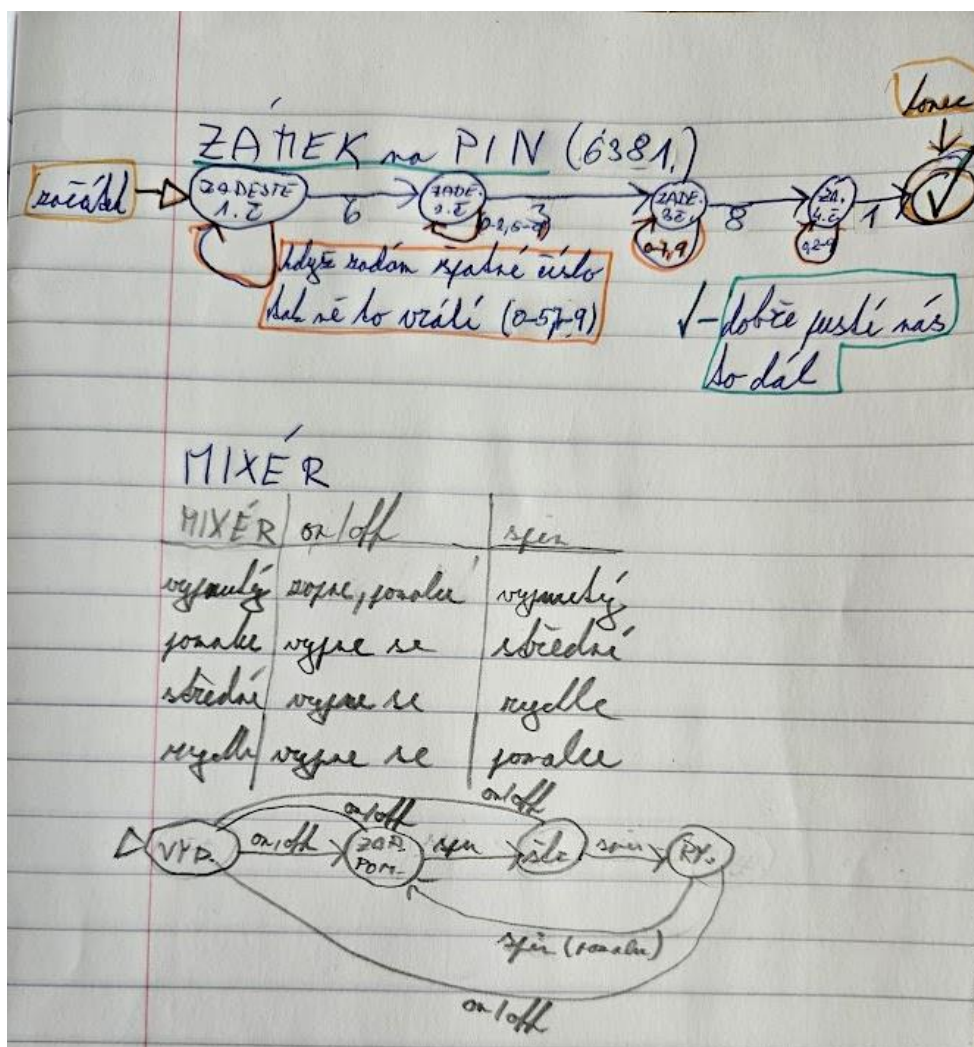 konec
ZÁMEK na PIN (6381.)
začátek
ZADEJTE 1.č
6
ZADE. 2.č
3
ZADE. 3č.
8
ZA. 4.č
1
✓
0-7,9
0,2-9
když zadám špatné číslo
tak mě to vrátí (0-5,7-9)
✓ - dobře pustí nás
to dál
MIXÉR
MIXÉR on/off spín
vypnutý zapne, pomalu vypnutý
pomalu vypne se střední
střední vypne se rychle
rychle vypne se pomalu
on/off
on/off
VYP. on/off ZAP. POM. spín stř. spín RY.
spín (pomalu)
on/off